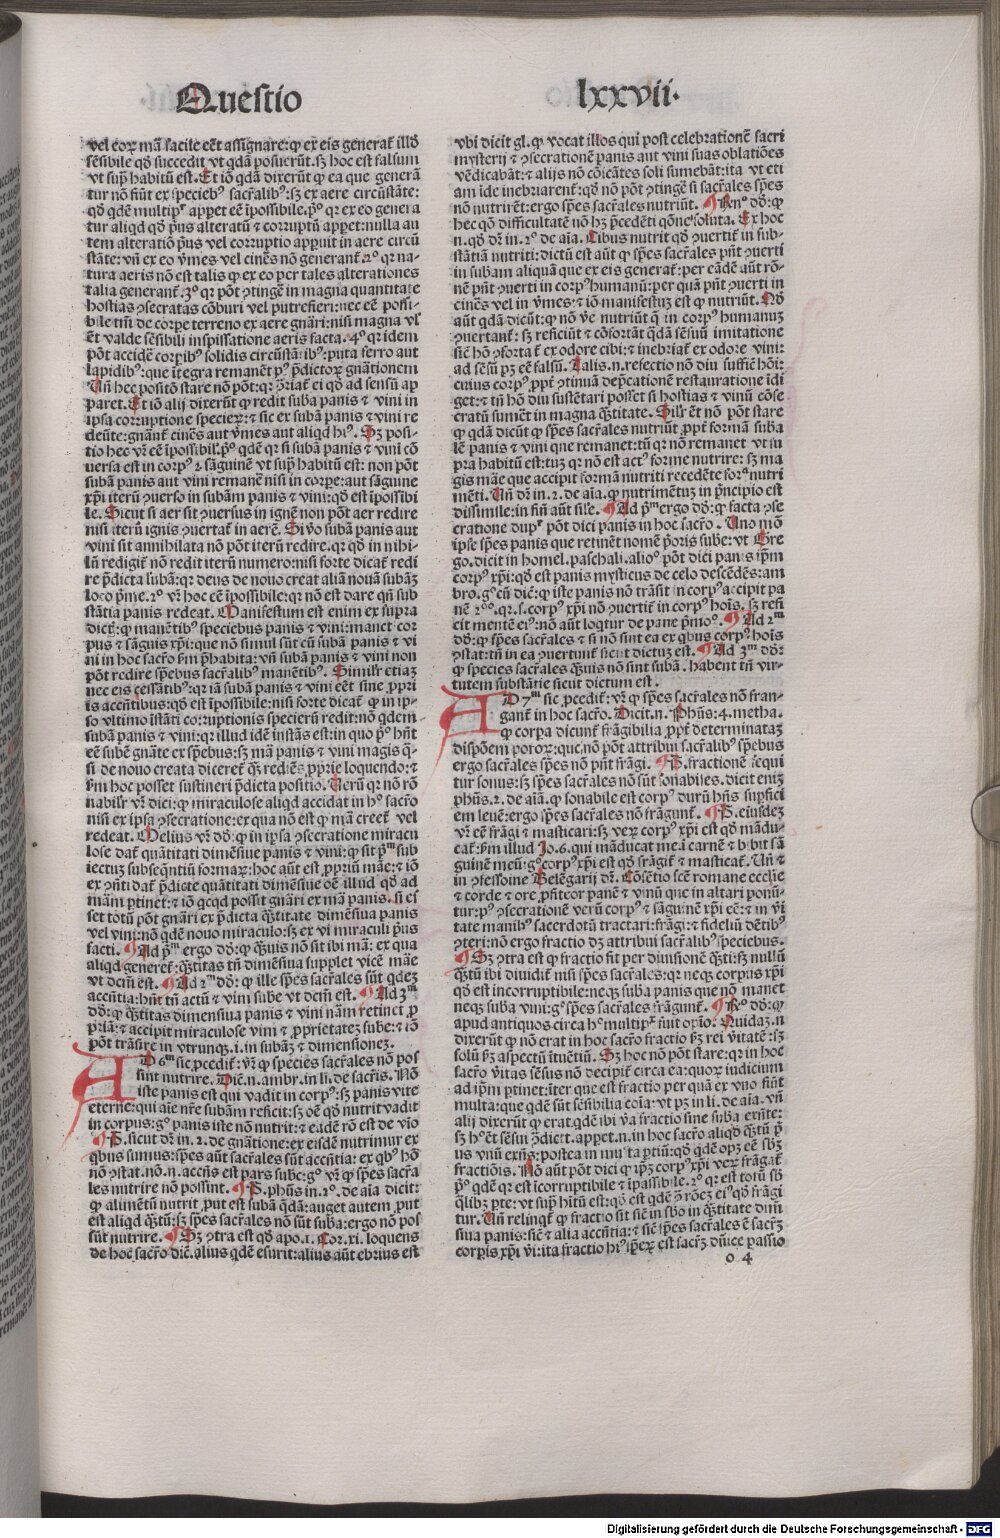 Questio lxxvii·
vel eoꝝ mã facile eẽt assignare: ꝙ eͯ eis generat᷑ illd̃
sẽsibile qd̃ succedit vt qdã posuerũt. sꝫ hoc est falsum
vt supͣ habitũ est. Et iõ qdã dixerũt ꝙ ea que generã
tur nõ fiũt ex specieb⁹ sacr̃alib⁹: sꝫ ex aere circũstãte:
qd̃ qdẽ multipͬ appet eẽ ĩpossibile. pͦ qꝛ ex eo genera
tur aliqd qd̃ pͥus alteratũ ⁊ corruptũ apꝑet: nulla au
tem alteratiõ pͥus vel corruptio apꝑuit in aere circũ
stãte: vñ ex eo v̾mes vel cinẽs nõ generant᷑. 2º qꝛ na-
tura aeris nõ est talis ꝙ ex eo per tales alterationes
talia generant᷑. 3º qꝛ põt ↄtingẽ in magna quantitate
hostias ↄsecratas cõburi vel putrefieri: nec eẽt possi-
bile tm̃ de corꝑe terreno ex aere gñari: nisi magna vl̾
ẽt valde sẽsibili inspissatione aeris facta. 4º qꝛ idem
põt accidẽ corꝑib⁹ solidis circũstãtib⁹: puta ferro aut
lapidib⁹: que ĩtegra remanẽt pͧ p̃dictoꝝ gnãtionem
Uñ hec positõ stare nõ põt: qꝛ ↄͬriat᷑ ei qd̃ ad sensũ ap
paret. Et iõ alij dixerũt ꝙ redit suba panis ⁊ vini in
ipsa corruptione specieꝝ: ⁊ sic ex subã panis ⁊ vini re
deũte: gnãnt᷑ cinẽs aut v̾mes aut aliqd hi⁹. Sꝫ posi-
tio hec vr̃ eẽ ĩpossibil. pͦ qdẽ qꝛ si subã panis ⁊ vini cõ
uersa est in corp⁹ ⁊ sãguinẽ vt supͣ habitũ est: non põt
subã panis aut vini remanẽ nisi in corꝑe: aut sãguine
xp̃i iterũ ↄuerso in subãm panis ⁊ vini: qd̃ est ĩpossibi
le. Sicut si aer sit ↄuersus in ignẽ non põt aer redire
nisi iterũ ignis ↄuertat᷑ in aerẽ. Si ṽo subã panis aut
vini sit annihilata nõ põt iterũ redire. qꝛ qd̃ in nihi-
lũ redigit᷑ nõ redit iterũ numero: nisi forte dicat᷑ redi
re p̃dicta subã: qꝛ deus de nouo creat aliã nouã subãꝫ
loco pͥme. 2º vr̃ hoc eẽ ĩpossibile: qꝛ nõ est dare qñ sub
stãtia panis redeat. Manifestum est enim ex supra
dict̃: ꝙ manẽtib⁹ speciebus panis ⁊ vini: manet cor
pus ⁊ sãguis xp̃i: que nõ simul sũt cũ subã panis ⁊ vi
ni in hoc sacr̃o ẜm p̃habita: vñ subã panis ⁊ vini non
põt redire sp̃ebus sacr̃alib⁹ manẽtib⁹. Similr̃ etiaꝫ
nec eis cessãtib⁹: qꝛ iã subã panis ⁊ vini eẽt sine ꝓpri
is accñtibus: qd̃ est ĩpossibile: nisi forte dicat᷑ ꝙ in ip-
so vltimo ĩstãti corruptionis specierũ redit: nõ qdem
subã panis ⁊ vini: qꝛ illud idẽ instãs est: in quo pͦ hñt
eẽ subẽ gnãte ex sp̃ebus: sꝫ mã panis ⁊ vini magis q̃-
si de nouo creata diceret᷑ qͣꝫ rediẽs ꝓprie loquendo: ⁊
ẜm hoc posset sustineri p̃dicta positio. Ueru qꝛ nõ rõ
nabilr̃ vr̃ dici: ꝙ miraculose aliqd accidat in h⁰ sacr̃o
nisi ex ipsa ↄsecratione: ex qua nõ est ꝙ mã creet᷑ vel
redeat. Melius vr̃ dõ: ꝙ in ipsa ↄsecratione miracu
lose dat᷑ quãtitati dimẽsiue panis ⁊ vini: ꝙ sit pͫ sub
iectuꝫ subseqñtiũ formaꝝ: hoc aũt est ꝓpriũ mãe: ⁊ iõ
ex ↄñti dat᷑ p̃dicte quãtitati dimẽsiue oẽ illud qd̃ ad
mãm ꝑtinet: ⁊ iõ qcqd posset gñari ex mã panis. si es
set totũ põt gnãri ex p̃dicta qͣtitate dimẽsiua panis
vel vini: nõ qdẽ nouo miraculo: sꝫ ex vi miraculi pͥus
facti. ¶ Ad pͫ ergo dõ: ꝙ qͣuis nõ sit ibi mã: ex qua
aliqd generet᷑: qͣtitas tñ dimẽsiua supplet vicẽ mãe
vt dcm̃ est. ¶ Ad 2ͫ dõ: ꝙ ille sp̃es sacr̃ales sũt qdeꝫ
accñtia: hñt tñ actũ ⁊ vim sube vt dcm̃ est. ¶ Ad 3ͫ
dõ: ꝙ qͣtitas dimẽsiua panis ⁊ vini nãm retinet ꝓ
pͥã: ⁊ accipit miraculose vim ⁊ ꝓprietateꝫ sube: ⁊ iõ
põt trãsire in vtrunqꝫ. i. in subãꝫ ⁊ dimensionez.
AD 6ͫ sic ꝓcedit᷑: vr̃ ꝙ species sacr̃ales nõ pos
sint nutrire. Dic̃. n. ambr. in li. de sacr̃is. Nõ
iste panis est qui vadit in corp⁹: sꝫ panis vite
eterne: qui aĩe nr̃e subãm reficit: sꝫ oẽ qd̃ nutrit vadit
in corpus: g⁰ panis iste nõ nutrit: ⁊ eadẽ rõ est de vĩo
¶ P. sicut dr̃ in. 2. de gnãtione: ex eisdẽ nutrimur ex
qbus sumus: sp̃es aũt sacr̃ales sũt accñtia: ex qb⁹ hõ
nõ ↄstat. nõ. n. accñs est pars sube: g⁰ vr̃ ꝙ sp̃es sacr̃a
les nutrire nõ possint. ¶ P. phũs in. 2º. de aĩa dicit:
ꝙ alimẽtũ nutrit ꝓut est subã qdã: auget autem ꝓut
est aliqd qͣtũ: sꝫ sp̃es sacr̃ales nõ sũt subã: ergo nõ pos
sũt nutrire. ¶ Sꝫ ↄtra est qd̃ apo. 1. Cor. xi. loquens
de hoc sacr̃o dic̃. alius qdẽ esurit: alius aũt ebrius est
vbi dicit gl. ꝙ vocat illos qui post celebrationẽ sacri
mysterij ⁊ ↄsecrationẽ panis aut vini suas oblatiões
vẽdicabãt: ⁊ alijs nõ cõicãtes soli sumebãt: ita vt eti
am ide inebriarent᷑: qd̃ nõ põt ↄtingẽ si sacr̃ales sp̃es
nõ nutrirẽt: ergo sp̃es sacr̃ales nutriũt. ¶ Rñº dõ: ꝙ
hec qõ difficultatẽ nõ hꝫ p̃cedẽti qõne soluta. Ex hoc
n. qd̃ dr̃ in. 2º de aĩa. Cibus nutrit qd̃ ↄuertit᷑ in sub-
stãtiã nutriti: dictũ est aũt ꝙ sp̃es sacr̃ales pñt ↄuerti
in subam aliquã que ex eis generat᷑: per eãdẽ aũt rõ-
nẽ pñt ↄuerti in corp⁹ humanũ: per quã pñt ↄuerti in
cinẽs vel in v̾mes: ⁊ iõ manifestuꝫ est ꝙ nutriũt. Nõ
aũt qdã dicũt: ꝙ nõ v̾e nutriũt q̃ in corp⁹ humanuꝫ
ↄuertant᷑: sꝫ reficiũt ⁊ cõfortãt qdã sẽsuũ imitatione
sic̃ hõ ↄfortat᷑ ex odore cibi: ⁊ inebriat᷑ ex odore vini:
ad sẽsũ pꝫ eẽ falsũ. Talis. n. refectio nõ diu sufficit hõi:
cuius corp⁹ ꝓpt̾ ↄtinuã depͬcationẽ restauratione ĩdi
get: ⁊ tñ hõ diu sustẽtari posset si hostias ⁊ vinũ cõse
cratũ sumẽt in magna qͣtitate. Silr̃ ẽt nõ põt stare
ꝙ qdã dicũt ꝙ sp̃es sacr̃ales nutriũt ꝓpt̾ formã suba
lẽ panis ⁊ vini que remanet: tũ qꝛ nõ remanet vt su
pra habitũ est: tuꝫ qꝛ nõ est act⁹ forme nutrire: sꝫ ma
gis mãe que accipit formã nutriti recedẽte forͣa nutri
mẽti. Uñ dr̃ in. 2. de aĩa. ꝙ nutrimẽtuꝫ in pͥncipio est
dissimile: in fiñ aũt sile. ¶ Ad pͫ ergo dõ: ꝙ facta ↄse
cratione dupͬ põt dici panis in hoc sacr̃o. Uno mõ
ipse sp̃es panis que retinẽt nomẽ pͥoris sube: vt Gre
go. dicit in homel. paschali. alioº põt dici panis ip̃m
corp⁹ xp̃i: qd̃ est panis mysticus de celo descẽdẽs: am
bro. g⁰ cũ dic̃: ꝙ iste panis nõ trãsit in corp⁹ accipit pa
nẽ 2º. qꝛ. s. corp⁹ xp̃i nõ ↄuertit᷑ in corp⁹ hoĩs. sꝫ refi
cit mentẽ ei⁹: nõ aũt loqtur de pane pͥmoº. ¶ Ad 2ͫ
dõ: ꝙ sp̃es sacr̃ales ⁊ si nõ sint ea ex qbus corp⁹ hoĩs
ↄstat: tñ in ea ↄuertunt᷑ sicut dictuꝫ est. ¶ Ad 3ͫ dõ:
ꝙ species sacr̃ales qͣuis nõ sint subã. habent tñ vir-
tutem substãtie sicut dictum est.
AD 7ͫ sic ꝓcedit᷑: vr̃ ꝙ sp̃es sacr̃ales nõ fran-
gant᷑ in hoc sacr̃o. Dicit. n. Phũs: 4. metha.
ꝙ corpa dicunt᷑ frãgibilia ꝓpt̾ determinataꝫ
dispõem poroꝝ: qu̾c nõ põt attribui sacr̃alib⁹ sp̃ebus
ergo sacr̃ales sp̃es nõ pñt frãgi. ¶ P. fractionẽ seqũi
tur sonus: sꝫ sp̃es sacr̃ales nõ sũt sonabiles. dicit eniꝫ
phũs. 2. de aĩa. ꝙ sonabile est corp⁹ durũ hñs supfici
em leuẽ: ergo sp̃es sacr̃ales nõ frãgunt᷑. ¶ P. eiusdeꝫ
vr̃ eẽ frãgi ⁊ masticari: sꝫ veꝝ corp⁹ xp̃i est qd̃ mãdu-
cat᷑: ẜm illud Jo. 6. qui mãducat meã carnẽ ⁊ bibit sã
guinẽ meũ: g⁰ corp⁹ xp̃i est qd̃ frãgit᷑ ⁊ masticat᷑. Uñ ⁊
in ↄfessione Belẽgarij dr̃. Cõsẽtio scẽ romane ecclie
⁊ corde ⁊ ore ꝓfiteor panẽ ⁊ vinũ que in altari ponũ-
tur: pͦ ↄsecrationẽ verũ corp⁹ ⁊ sãguinẽ xp̃i eẽ: ⁊ in ṽi
tate manib⁹ sacerdotũ tractari: frãgi: ⁊ fideliũ dẽtib⁹
ↄteri: nõ ergo fractio dꝫ attribui sacr̃alib⁹ speciebus.
¶ Sꝫ ↄtra est ꝙ fractio fit per diuisionẽ qͣti: sꝫ nullũ
qͣtũ ibi diuidit᷑ nisi sp̃es sacr̃ales: qꝛ neqꝫ corpus xp̃i
qd̃ est incorruptibile: neqꝫ suba panis que nõ manet
neqꝫ suba vini: g⁰ sp̃es sacr̃ales frãgunt᷑. ¶ Rº dõ: ꝙ
apud antiquos circa h⁰ multipͬ fuit opĩo. Quidaꝫ. n
dixerũt ꝙ nõ erat in hoc sacr̃o fractio ẜꝫ rei ṽitatẽ: sꝫ
solũ ẜꝫ aspectũ ĩtuẽtiũ. Sꝫ hoc nõ põt stare: qꝛ in hoc
sacr̃o ṽitas sẽsus nõ decipit᷑ circa ea: quoꝝ iudicium
ad ip̃m ꝑtinet: ĩter que est fractio per quã ex vno fiũt
multa: que qdẽ sũt sẽsibilia cõia: vt pꝫ in li. de aĩa. vñ
alij dixerũt ꝙ erat qdẽ ibi v̾a fractio sine suba exñte:
sꝫ h⁰ ẽt sẽsui ↄͬdicit. appet. n. in hoc sacr̃o aliqd qͣtũ pͥ
us vnũ exñs: postea in multa ꝑtitũ: qd̃ qdẽ opꝫ eẽ sbꝫ
fractiõis. Nõ aũt põt dici ꝙ ip̃ꝫ corp⁹ xp̃i veꝝ frãgat᷑
pͦ qdẽ qꝛ est ĩcorruptibile ⁊ ĩpassibile. 2º qꝛ est totũ sb̾
qlibꝫ pte: vt supͣ hitũ est: qd̃ est qdẽ ↄͬ rõeꝫ ei⁹ qd̃ frãgi
tur. Uñ relinqt᷑ ꝙ fractio sit sic̃ in sb̾o in qͣtitate dim̃
siua panis: sic̃ ⁊ alia accñtia: ⁊ sic̃ sp̃es sacr̃ales ẽ sacr̃ꝫ
corꝑis xp̃i v̾i: ita fractio hi⁹ sp̃eꝝ est sacr̃ꝫ dñice passio
o 4
Digitalisierung gefördert durch die Deutsche Forschungsgemeinschaft - DFG